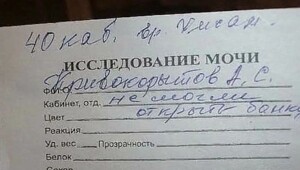 40 каб. вр. Унган.
ИССЛЕДОВАНИЕ МОЧИ
Кривокорытов А. С.
Кабинет, отд. не могли
Цвет открыть банку
Реакция
Уд. вес Прозрачность
Белок